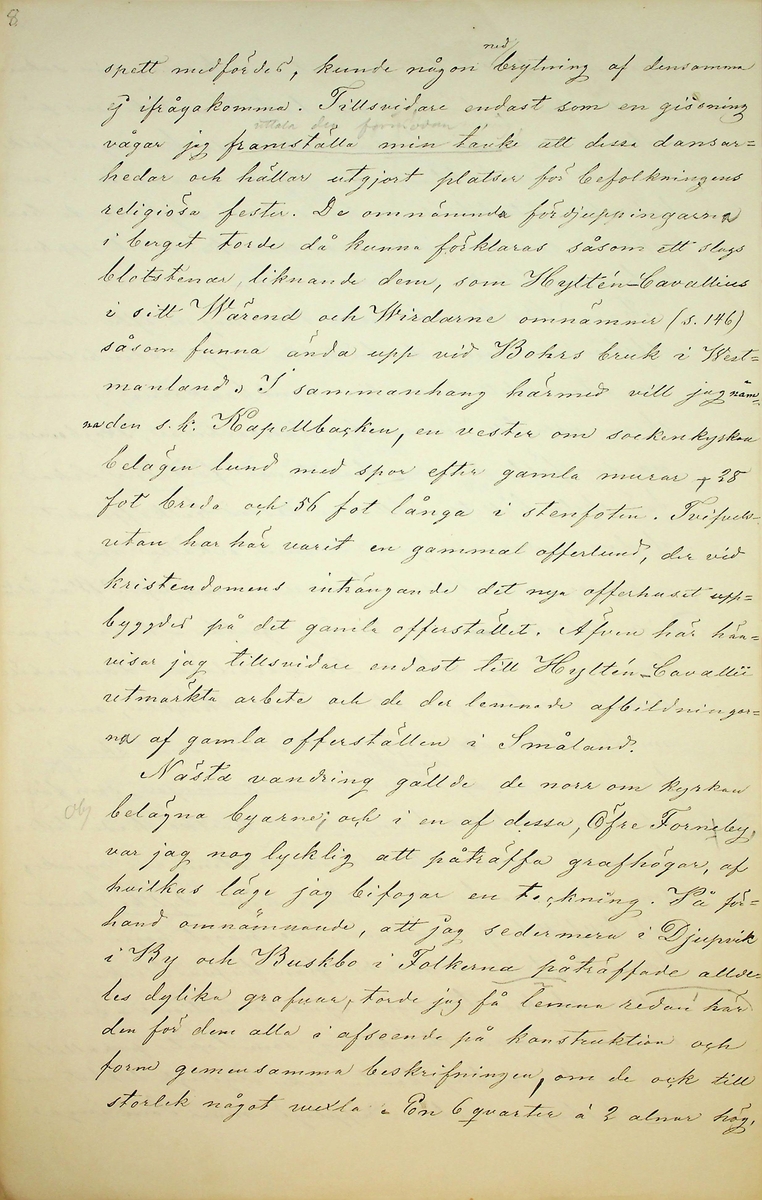 8
ned
spett medfördes, kunde någon brytning af densamma
ej ifrågakomma. Tillsvidare endast som en gissning
uttala den förmodan
vågar jag framställa min tanke att dessa dansar=
hedar och hällar utgjort platser för befolkningens
religiösa fester. De omnämnda fördjuppingarna
i berget torde då kunna förklaras såsom ett slags
blotstenar, liknande dem, som Hyltén-Cavallius
i sitt Wärend och Wirdarne omnämner (s. 146)
såsom funna ända upp vid Bohrs bruk i West=
manland. I sammanhang härmed vill jag näm=
na den s.k. Kapellbacken, en vester om sockenkyrkan
belägen lund med spor efter gamla murar + 28
fot breda och 56 fot långa i stenfoten. Tvifvels=
utan har här varit en gammal offerlund, der vid
kristendomens inträngande det nya offerhuset upp=
byggdes på det gamla offerstället. Äfven här hän=
visar jag tillsvidare endast till Hyltén-Cavallii
utmärkta arbete och de der lemnade afbildningar=
na af gamla offerställen i Småland.
Nästa vandring gällde de norr om kyrkan
Obj
belägna byarne, och i en af dessa, Öfre Forneby,
var jag nog lycklig att påträffa grafhögar, af
hvilkas läge jag bifogar en teckning. På för=
hand omnämnande, att jag sedermera i Djupvik
i By och Buskbo i Folkerna påträffade allde=
les dylika grafvar, torde jag få lemna redan här
den för dem alla i afseende på konstruktion och
form gemensamma beskrifningen, om de ock till
storlek något vexla. En 6 qvarter à 2 alnar hög,